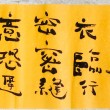 衣臨行
密密縫
意恐遲